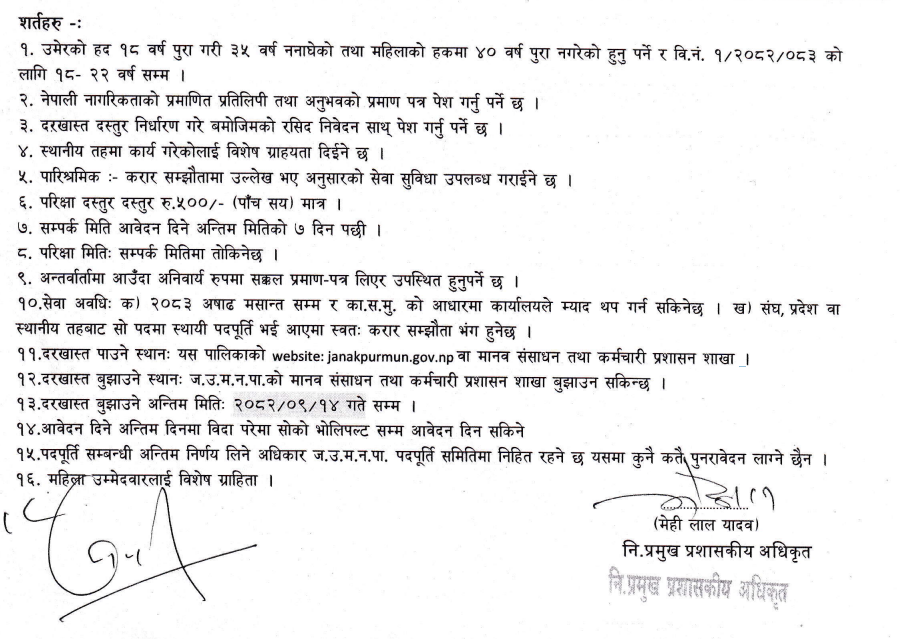 शर्तहरु -:
१. उमेरको हद १८ वर्ष पुरा गरी ३५ वर्ष ननाघेको तथा महिलाको हकमा ४० वर्ष पुरा नगरेको हुनु पर्ने र वि.नं. १/२०८२/०८३ को
लागि १८- २२ वर्ष सम्म ।
२. नेपाली नागरिकताको प्रमाणित प्रतिलिपी तथा अनुभवको प्रमाण पत्र पेश गर्नु पर्ने छ ।
३. दरखास्त दस्तुर निर्धारण गरे बमोजिमको रसिद निवेदन साथ् पेश गर्नु पर्ने छ ।
४. स्थानीय तहमा कार्य गरेकोलाई विशेष ग्राहयता दिईने छ ।
५. पारिश्रमिक ः- करार सम्झौतामा उल्लेख भए अनुसारको सेवा सुविधा उपलब्ध गराईने छ ।
६. परिक्षा दस्तुर दस्तुर रु.५००/- (पाँच सय) मात्र ।
७. सम्पर्क मिति आवेदन दिने अन्तिम मितिको ७ दिन पछी ।
८. परिक्षा मितिः सम्पर्क मितिमा तोकिनेछ ।
९. अन्तर्वार्तामा आउँदा अनिवार्य रुपमा सक्कल प्रमाण-पत्र लिएर उपस्थित हुनुपर्ने छ ।
१०.सेवा अवधिः क) २०८३ अषाढ मसान्त सम्म र का.स.मु. को आधारमा कार्यालयले म्याद थप गर्न सकिनेछ । ख) संघ, प्रदेश वा
स्थानीय तहबाट सो पदमा स्थायी पदपूर्ति भई आएमा स्वतः करार सम्झौता भंग हुनेछ ।
११.दरखास्त पाउने स्थानः यस पालिकाको website: janakpurmun.gov.np वा मानव संसाधन तथा कर्मचारी प्रशासन शाखा ।
१२.दरखास्त बुझाउने स्थानः ज.उ.म.न.पा.को मानव संसाधन तथा कर्मचारी प्रशासन शाखा बुझाउन सकिन्छ ।
१३.दरखास्त बुझाउने अन्तिम मितिः २०८२/०९/१४ गते सम्म ।
१४.आवेदन दिने अन्तिम दिनमा विदा परेमा सोको भोलिपल्ट सम्म आवेदन दिन सकिने
१५.पदपूर्ति सम्बन्धी अन्तिम निर्णय लिने अधिकार ज.उ.म.न.पा. पदपूर्ति समितिमा निहित रहने छ यसमा कुनै कतै पुनरावेदन लाग्ने छैन ।
१६. महिला उम्मेदवारलाई विशेष ग्राहिता ।
(मेही लाल यादव)
नि.प्रमुख प्रशासकीय अधिकृत
नि.प्रमुख प्रशासकीय अधिकृत